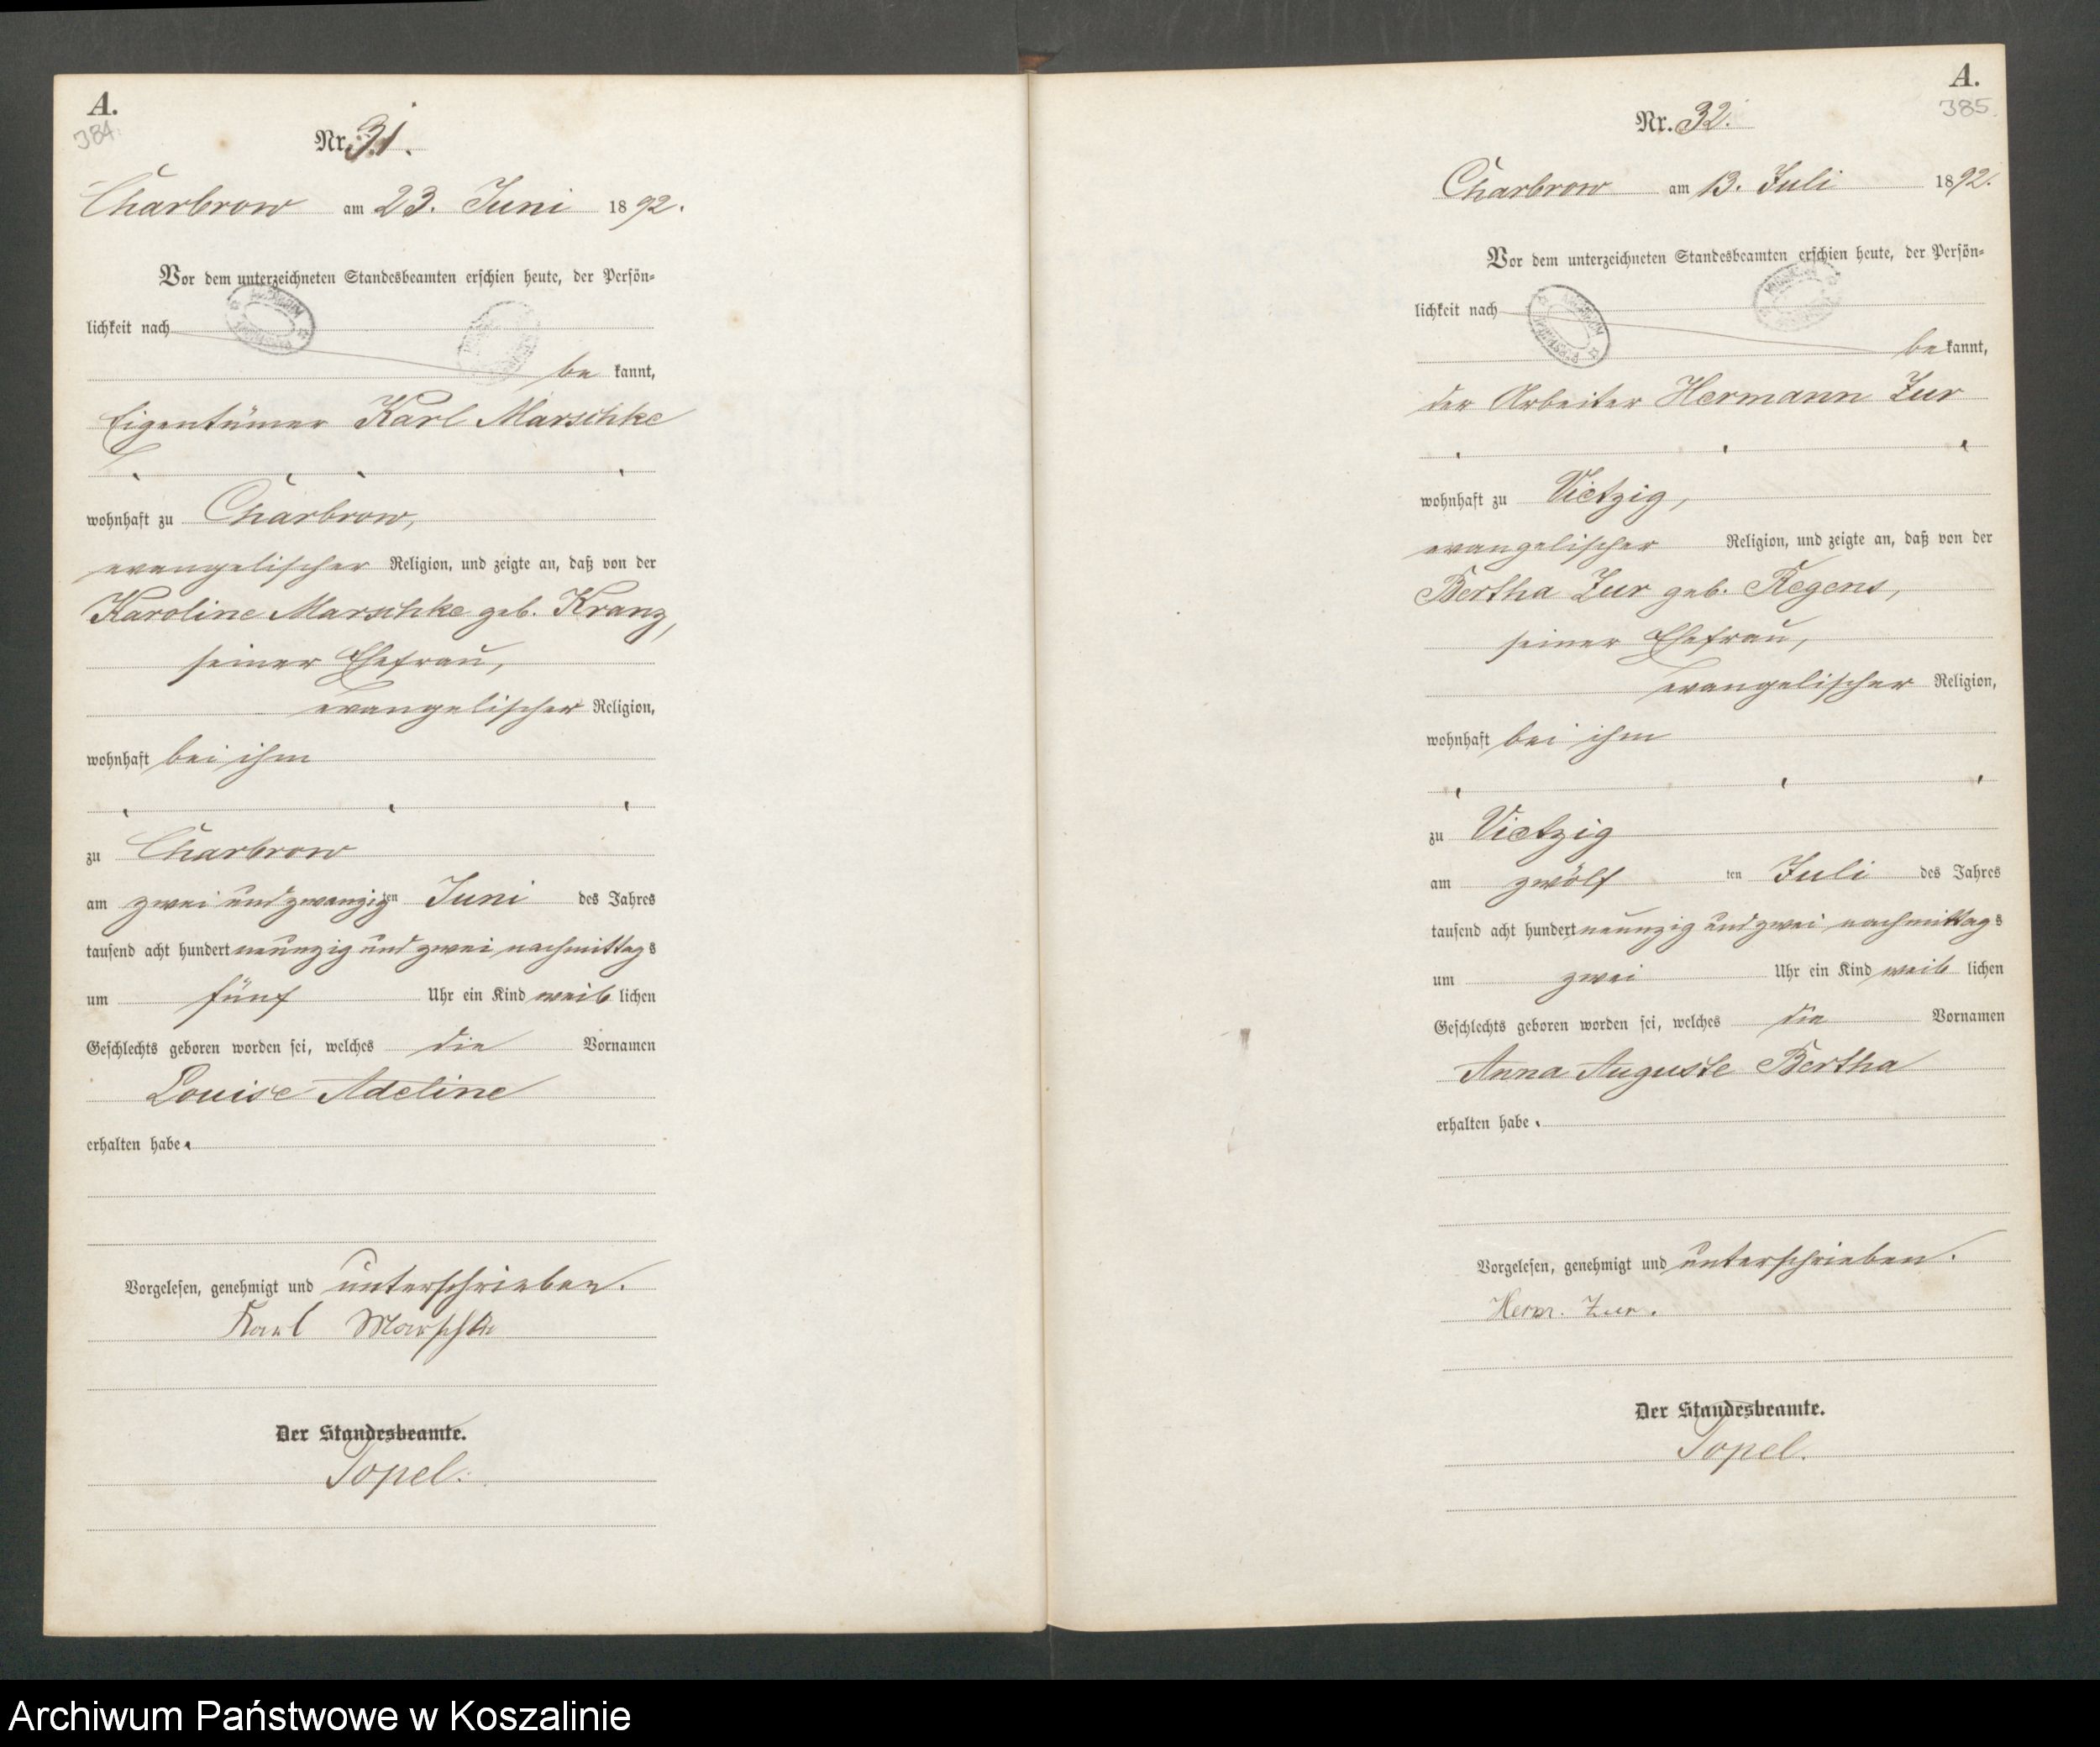 A.
384.
Nr. 31.
Charbrow am 23. Juni 1892.
Vor dem unterzeichneten Standesbeamten erschien heute, der Persön-
lichkeit nach
bekannt,
Eigentümer Karl Marschke
wohnhaft zu Charbrow,
evangelischer Religion, und zeigte an, daß von der
Karoline Marschke geb. Kranz,
seiner Ehefrau,
evangelischer Religion,
wohnhaft bei ihm
zu Charbrow
am zwei und zwanzigten Juni des Jahres
tausend acht hundert neunzig und zwei nachmittags
um fünf Uhr ein Kind weiblichen
Geschlechts geboren worden sei, welches die Vornamen
Louise Adeline
erhalten habe.
Vorgelesen, genehmigt und unterschrieben.
Karl Marschke
Der Standesbeamte.
Topel.
A.
385.
Nr. 32.
Charbrow am 13. Juli 1892.
Vor dem unterzeichneten Standesbeamten erschien heute, der Persön-
lichkeit nach
bekannt,
der Arbeiter Hermann Zur
wohnhaft zu Vietzig,
evangelischer Religion, und zeigte an, daß von der
Bertha Zur geb. Regens,
seiner Ehefrau,
evangelischer Religion,
wohnhaft bei ihm
zu Vietzig
am zwölf ten Juli des Jahres
tausend acht hundert neunzig und zwei nachmittags
um zwei Uhr ein Kind weiblichen
Geschlechts geboren worden sei, welches die Vornamen
Anna Auguste Bertha
erhalten habe.
Vorgelesen, genehmigt und unterschrieben.
Herm. Zur.
Der Standesbeamte.
Topel.
Archiwum Państwowe w Koszalinie